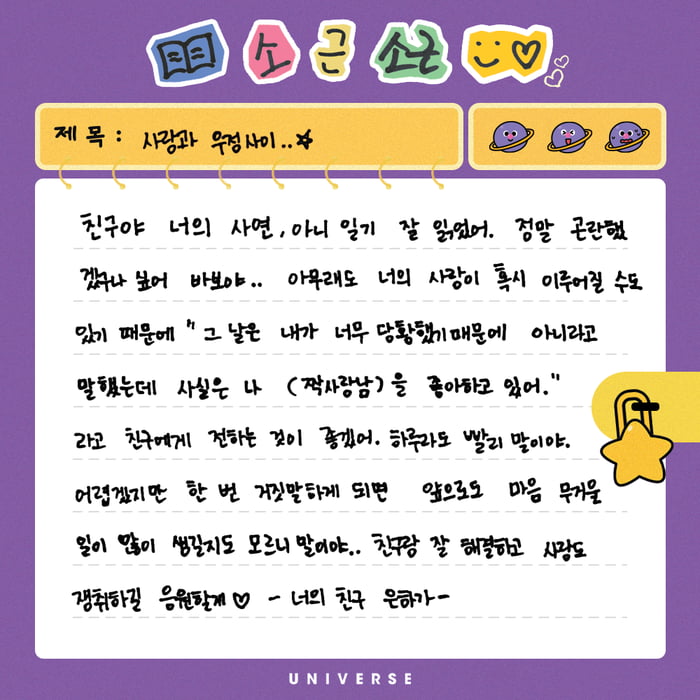 소근소근
제목: 사랑과 우정사이..☆
친구야 너의 사연, 아니 일기 잘 읽었어. 정말 곤란했
겠구나 싶어 바보야.. 아무래도 너의 사랑이 혹시 이루어질 수도
있기 때문에 "그 날은 내가 너무 당황했기때문에 아니라고
말했는데 사실은 나 (짝사랑남)을 좋아하고 있어."
라고 친구에게 전하는 것이 좋겠어. 하루라도 빨리 말이야.
어렵겠지만 한 번 거짓말하게 되면 앞으로도 마음 무거울
일이 많이 생길지도 모르니 말이야.. 친구랑 잘 해결하고 사랑도
쟁취하길 응원할게♡ - 너의 친구 은하가-
UNIVERSE